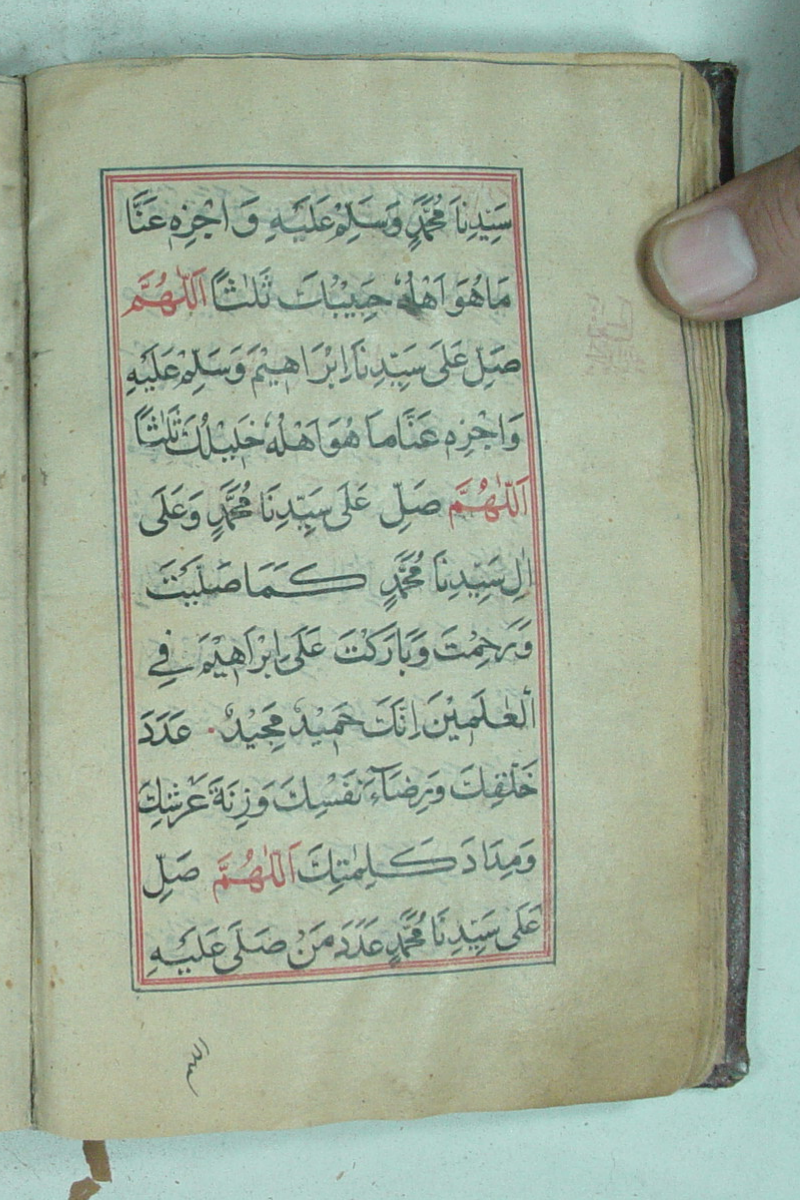 سَيِّدِنَا مُحَمَّدٍ وَسَلِّمْ عَلَيْهِ وَاجْزِهِ عَنَّا
مَا هُوَ اَهْلُهُ حَبِيْبُكَ ثَلٰثًا اَللّٰهُمَّ
صَلِّ عَلَى سَيِّدِنَا اِبْرَاهِيْمَ وَسَلِّمْ عَلَيْهِ
وَاجْزِهِ عَنَّا مَا هُوَ اَهْلُهُ خَلِيْلُكَ ثَلٰثًا
اَللّٰهُمَّ صَلِّ عَلَى سَيِّدِنَا مُحَمَّدٍ وَعَلَى
اٰلِ سَيِّدِنَا مُحَمَّدٍ كَمَا صَلَّيْتَ
وَرَحِمْتَ وَبَارَكْتَ عَلَى اِبْرَاهِيْمَ فِي
الْعٰلَمِيْنَ اِنَّكَ حَمِيْدٌ مَجِيْدٌ۰ عَدَدَ
خَلْقِكَ وَرِضَاءَ نَفْسِكَ وَزِنَةَ عَرْشِكَ
وَمِدَادَ كَلِمٰتِكَ اَللّٰهُمَّ صَلِّ
عَلَى سَيِّدِنَا مُحَمَّدٍ عَدَدَ مَنْ صَلَّى عَلَيْهِ
اللهم